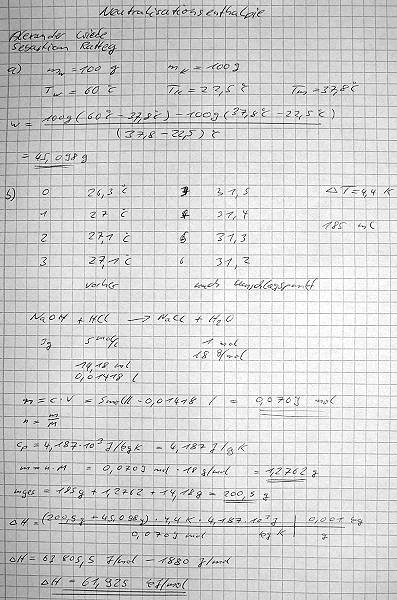 Neutralisationsenthalpie
Alexander
Sebastian
a) mw = 100 g mK = 100 g
Tw = 60 °C TK = 22,5 °C Tm = 37,8 °C
w = 100g (60°C - 37,8°C) - 100g (37,8°C - 22,5°C)
(37,8 - 22,5) °C
= 45,098 g
b) 0 26,3 °C 31,5 ΔT = 4,4 K
1 27 °C 31,4 185 ml
2 27,1 °C 5 31,3
3 27,1 °C 6 31,2
vorher nach Umschlagspunkt
NaOH + HCl → NaCl + H2O
3g 5 mol/l 1 mol
18 g/mol
14,18 ml
0,01418 l
n = c · V = 5 mol/l · 0,01418 l = 0,0709 mol
n = m/M
cp = 4,187 · 10³ J/kg K = 4,187 J/g K
m = n · M = 0,0709 mol · 18 g/mol = 1,2762 g
mges = 185g + 1,2762 + 14,18g = 200,5 g
ΔH = (200,5g + 45,098g) · 4,4 K · 4,187 · 10³ J 0,001 kg
0,0709 mol kg K g
ΔH = 63805,5 J/mol - 1880 J/mol
ΔH = 61,925 kJ/mol